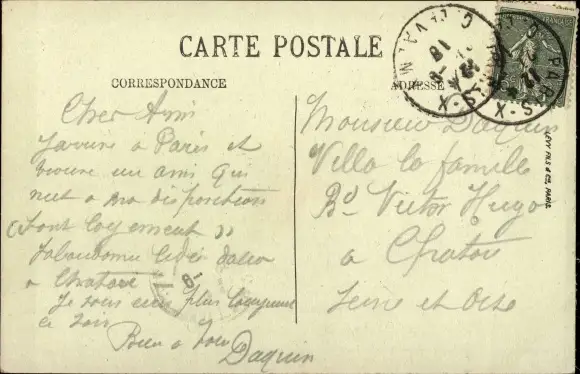 CARTE POSTALE
CORRESPONDANCE
ADRESSE
Cher Ami
J'arrive a Paris et
trouve un ami qui
met a ma disposition
(son logement)
J'abandonne l'idée d'aller
a Chatou
Je vous écris plus longuement
ce soir
Bien a vous
Daquin
Monsieur Daquin
Villa la famille
Bd Victor Hugo
a Chatou
Seine et Oise
PARIS-X
LÉVY FILS & CIE, PARIS